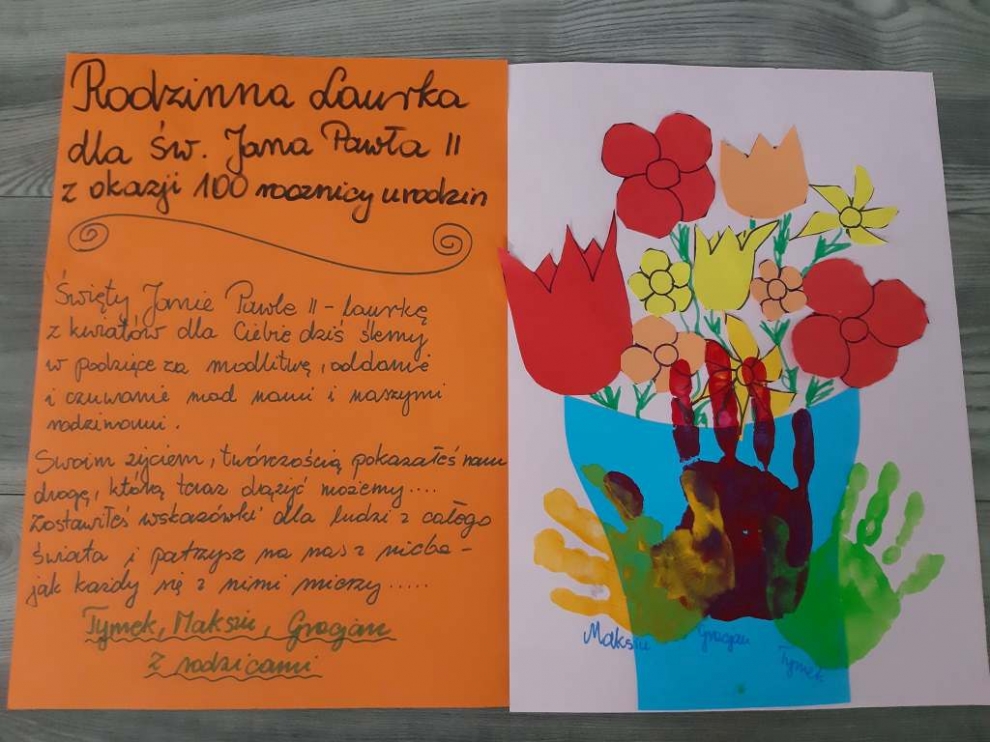 Rodzinna Laurka
dla św. Jana Pawła II
z okazji 100 rocznicy urodzin
Święty Janie Pawle II - laurkę
z kwiatów dla Ciebie dziś ślemy
w podzięce za modlitwę, oddanie
i czuwanie nad nami i naszymi
rodzinami.
Swoim życiem, twórczością pokazałeś nam
drogę, którą teraz dążyć możemy....
Zostawiłeś wskazówki dla ludzi z całego
świata i patrzysz na nas z nieba -
jak każdy się z nimi mierzy.....
Tymek, Maksiu, Grogan
z rodzicami
Maksiu
Grogan
Tymek